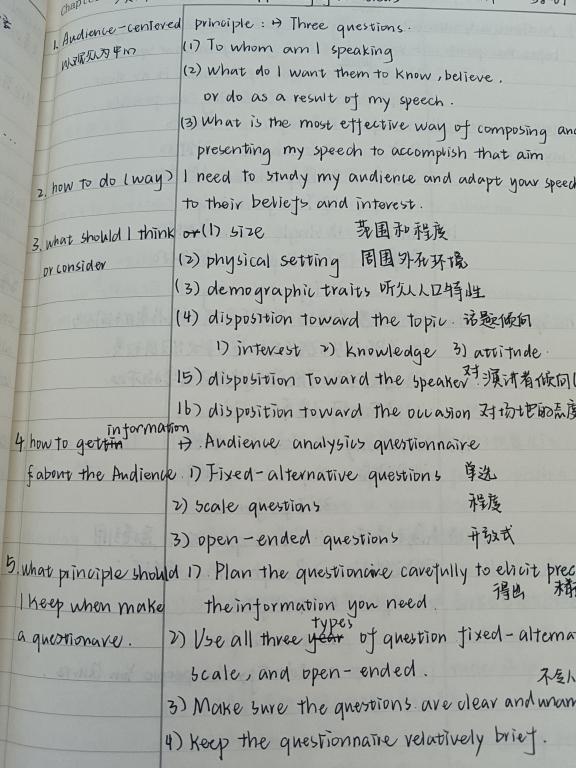 1. Audience-centered principle : → Three questions.
以观众为中心 (1) To whom am I speaking
(2) what do I want them to know, believe,
or do as a result of my speech.
(3) what is the most effective way of composing and
presenting my speech to accomplish that aim
2. how to do (way) I need to study my audience and adapt your speech
to their beliefs and interest.
3. what should I think or (1) size 范围和程度
or consider (2) physical setting 周围外在环境
(3) demographic traits 听众人口特性
(4) disposition toward the topic. 话题倾向
1) interest 2) knowledge 3) attitude.
15) disposition Toward the speaker 对演讲者倾向
16) disposition toward the occasion 对场地的态度
4. how to get information → Audience analysics questionnaire
about the Audience. 1) Fixed-alternative questions 单选
2) scale questions 程度
3) open-ended questions 开放式
5. what principle should 1) Plan the questionaire carefully to elicit prec
I keep when make the information you need. 得出
a questionare. 2) Use all three types of question fixed-alterna
scale, and open-ended.
3) Make sure the questions are clear and unam
4) Keep the questionnaire relatively brief.